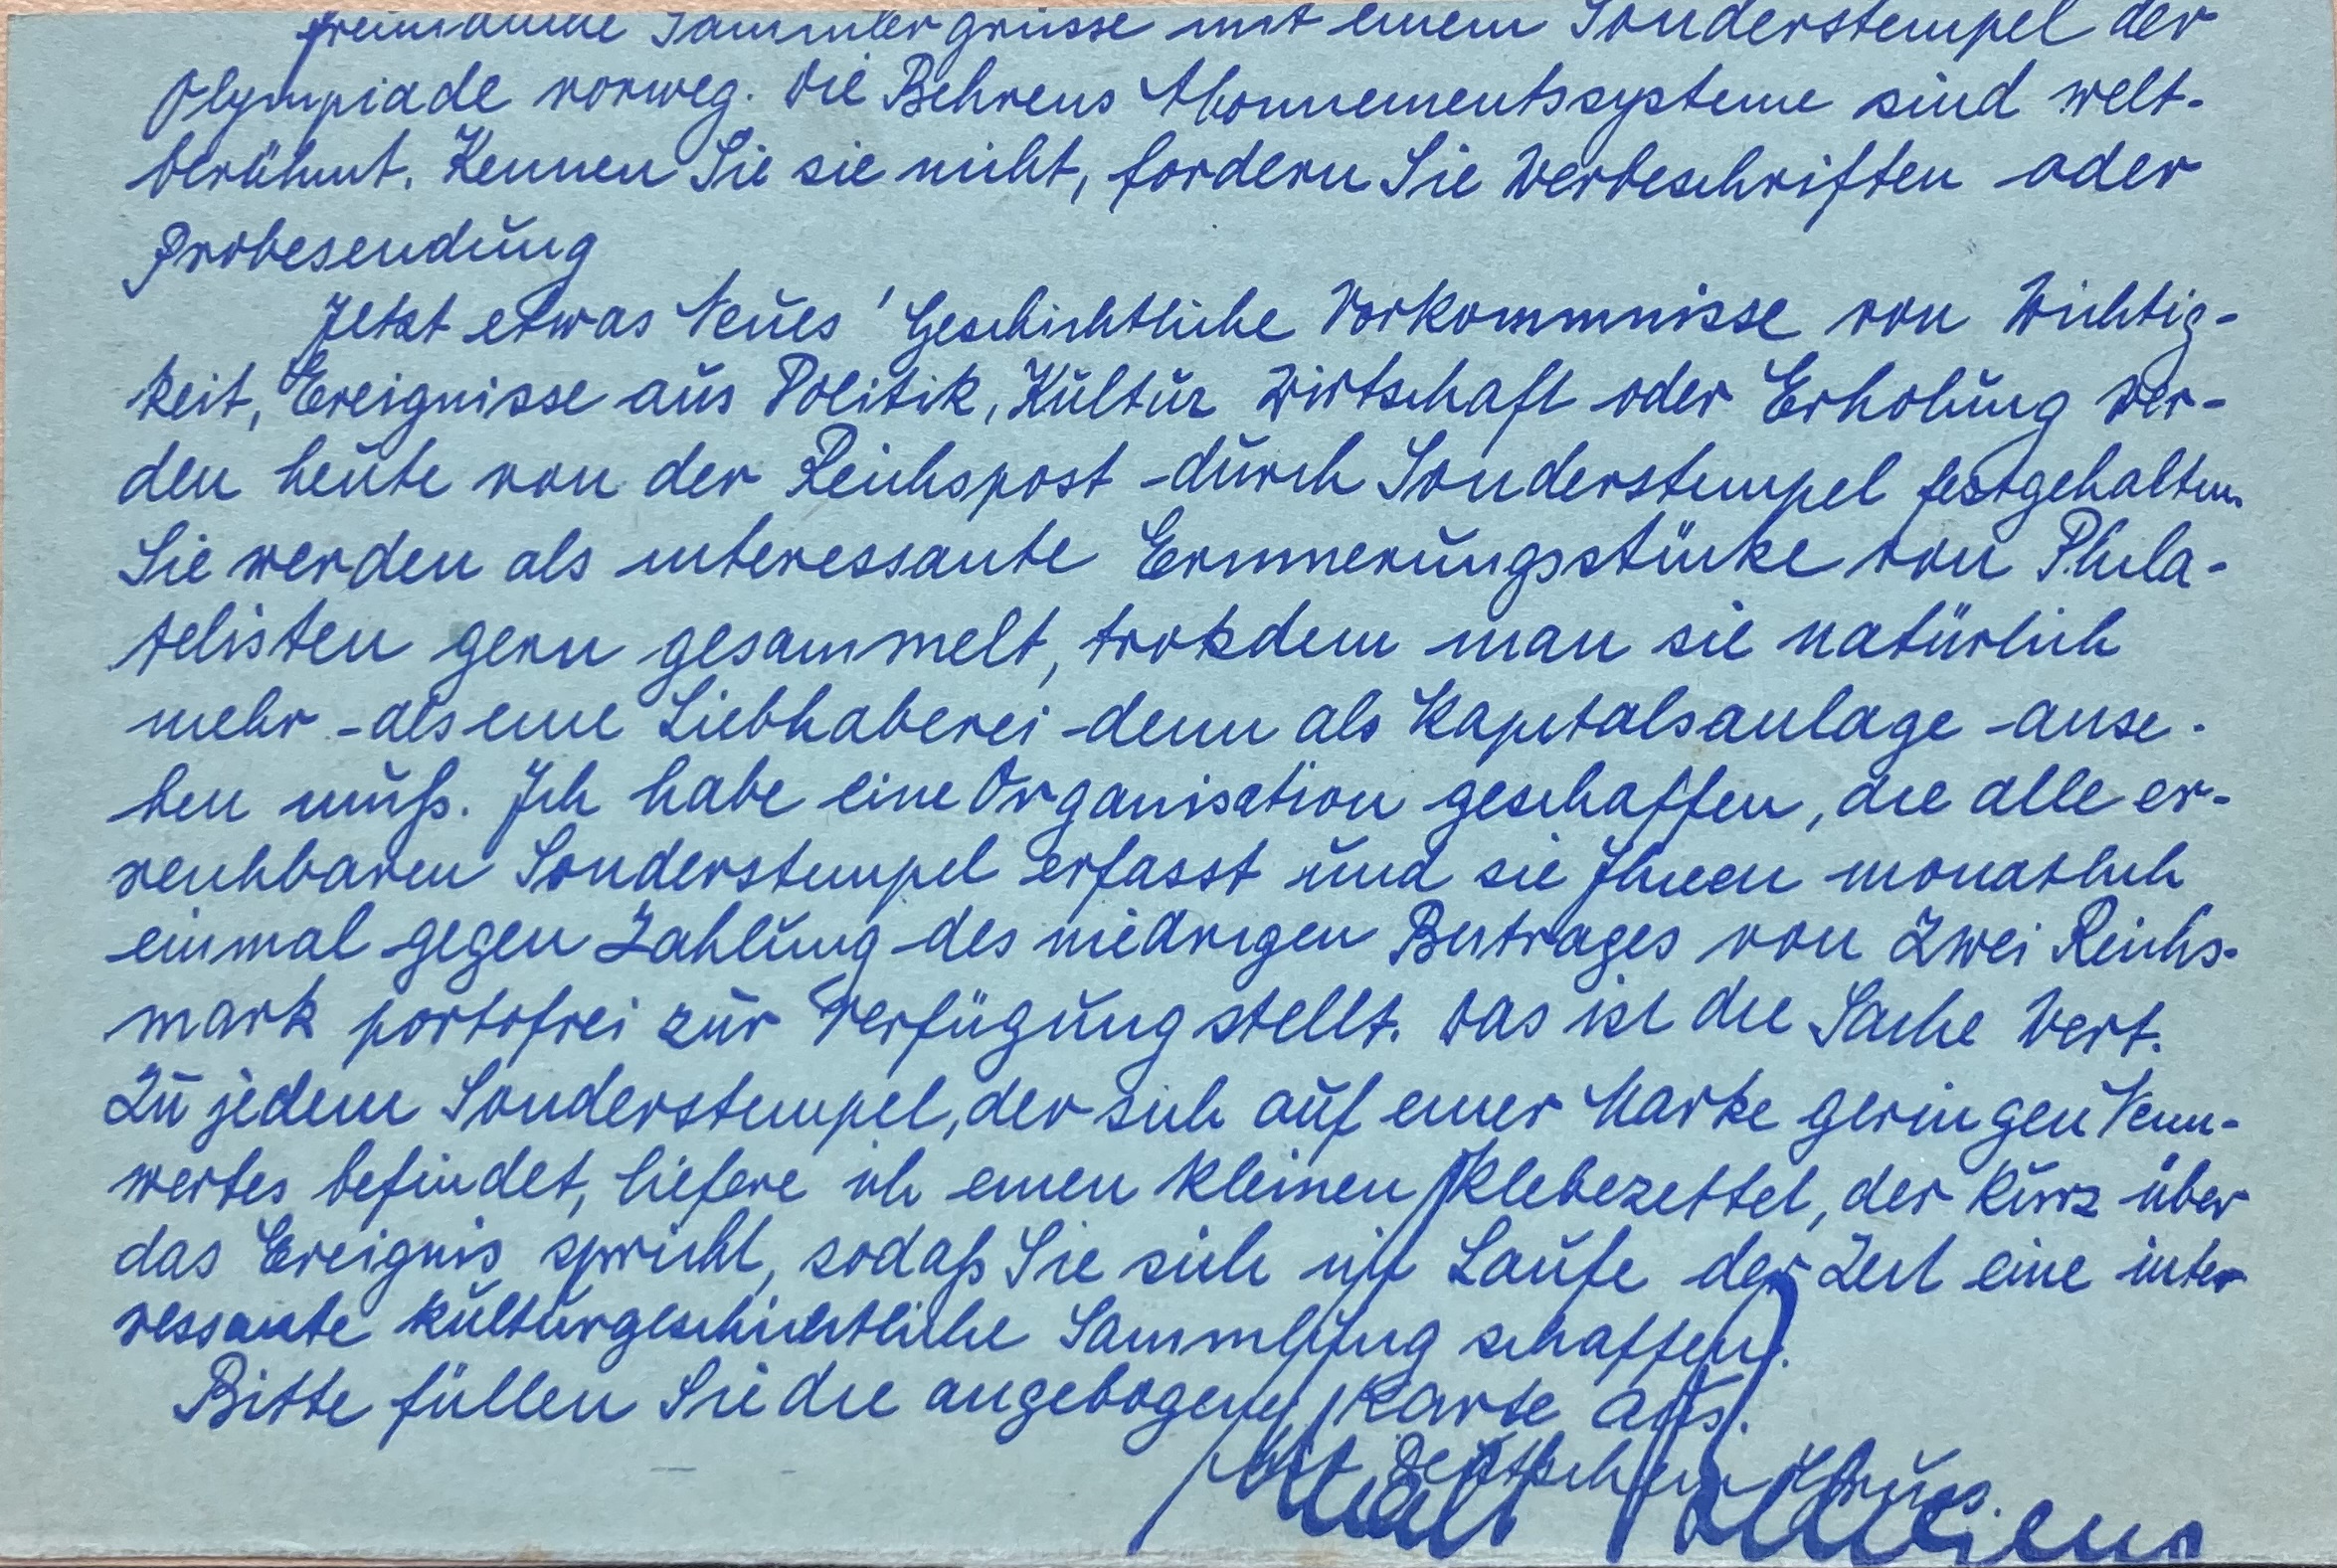 freundliche Sammlergrüsse mit einem Sonderstempel der
Olympiade vorweg. Die Behrens Abonnementssysteme sind welt-
berühmt. Kennen Sie sie nicht, fordern Sie Werbeschriften oder
Probesendung
Jetzt etwas Neues! Geschichtliche Vorkommnisse von Wichtig-
keit, Ereignisse aus Politik, Kultur Wirtschaft oder Erholung wer-
den heute von der Reichspost durch Sonderstempel festgehalten.
Sie werden als interessante Erinnerungsstücke von Phila-
telisten gern gesammelt, trotzdem man sie natürlich
mehr als eine Liebhaberei denn als Kapitalsanlage anse-
hen muß. Ich habe eine Organisation geschaffen, die alle er-
reichbaren Sonderstempel erfasst und sie Ihnen monatlich
einmal gegen Zahlung des niedrigen Beitrages von Zwei Reichs-
mark portofrei zur Verfügung stellt. Das ist die Sache Wert.
Zu jedem Sonderstempel, der sich auf einer Marke geringen Nenn-
wertes befindet, liefere ich einen kleinen Klebezettel, der kurz über
das Ereignis spricht, sodaß Sie sich im Laufe der Zeit eine inte-
ressante kulturgeschichtliche Sammlung schaffen.
Bitte füllen Sie die angebogene Karte aus.
Mit Deutschem Gruss.
Behrens